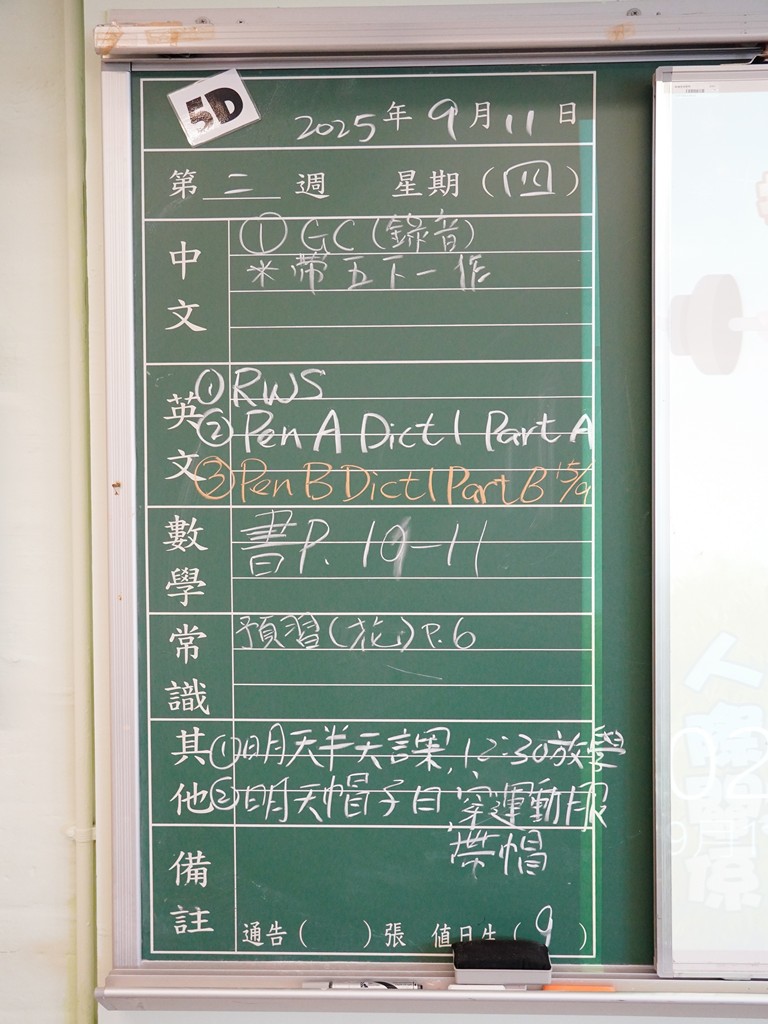 5D
2025年9月11日
第 二 週 星期（四）
中文
① GC (錄音)
* 帶五下一作
英文
① RWS
② Pen A Dict 1 Part A
③ Pen B Dict 1 Part B 15/9
數學
書P. 10-11
常識
預習(花) P.6
其他
① 明天半天課, 12:30放學
② 明天帽子日 穿運動服
帶帽
備註
通告（ ）張 值日生（9）
人
係
02
9月11